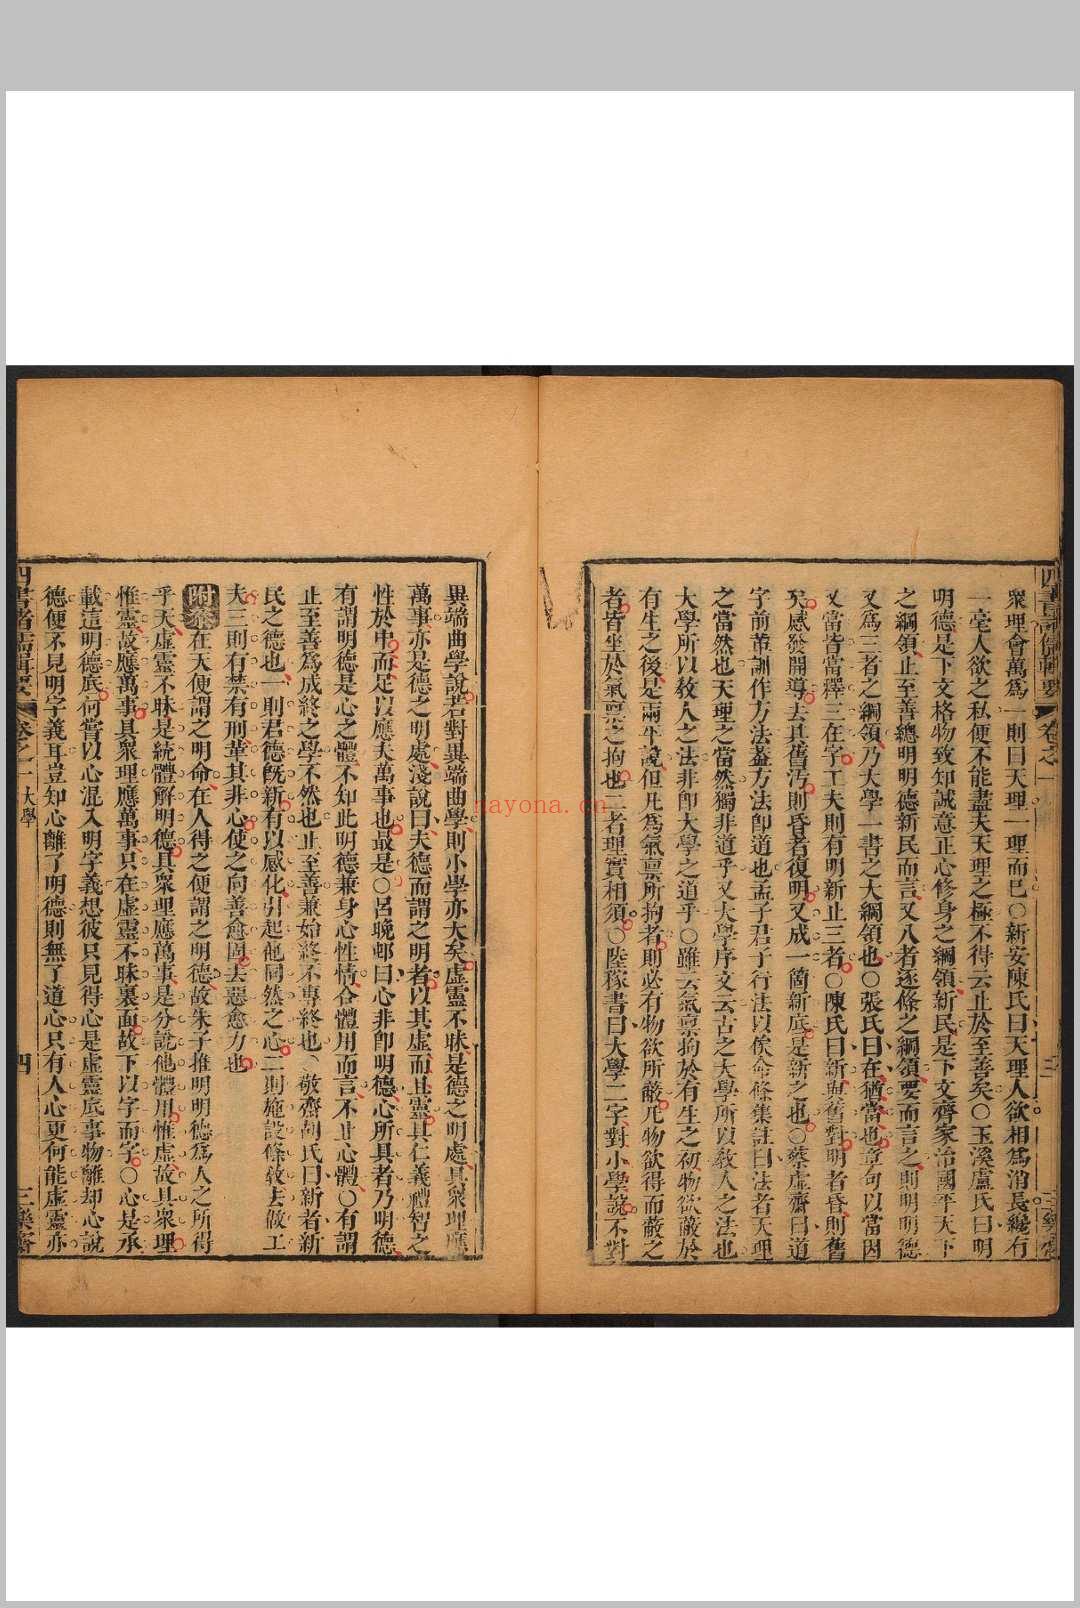 衆理會萬爲一則曰天理一理而已○新安陳氏曰天理人欲相爲消長纔有
一毫人欲之私便不能盡夫天理之極不得云止於至善矣○玉溪盧氏曰明
明德是下文格物致知誠意正心修身之綱領新民是下文齊家治國平天下
之綱領止至善總明明德新民而言又八者逐條之綱領要而言之則明明德
又爲三者之綱領乃大學一書之大綱領也○張氏曰在猶當也章句以當因
又當皆當釋三在字工夫則有明新止三者○陳氏曰新與舊對明者昏則舊
矣感發開導去其舊汚則昏者復明又成一箇新底是新之也○蔡虛齋曰道
字前輩訓作方法葢方法卽道也孟子君子行法以俟命條集註曰法者天理
之當然也天理之當然獨非道乎又大學序文云古之大學所以敎人之法也
大學所以敎人之法非卽大學之道乎○雖云氣禀拘於有生之初物欲蔽於
有生之後是兩平說但凡爲氣禀所拘者則必有物欲所蔽凡物欲得而蔽之
者皆坐於氣禀之拘也二者理實相須○陸稼書曰大學二字對小學說不對
異端曲學說若對異端曲學則小學亦大矣虛靈不昧是德之明處具衆理應
萬事亦是德之明處淺說曰夫德而謂之明者以其虛而且靈具仁義禮智之
性於中而足以應夫萬事也最是○呂晚邨曰心非卽明德心所具者乃明德
有謂明德是心之體不知此明德兼身心性情合體用而言不止心體○有謂
止至善爲成終之學不然也止至善兼始終不專終也○敬齋胡氏曰新者新
民之德也一則君德旣新有以感化引起他同然之心二則施設條敎去做工
夫三則有禁有刑革其非心使之向善愈固去惡愈力也
附叅在天便謂之明命在人得之便謂之明德故朱子推明明德爲人之所得
乎天虛靈不昧是統體解明德具衆理應萬事是分說他體用惟虛故具衆理
惟靈故應萬事具衆理應萬事只在虛靈不昧裏面故下以字而字○心是承
載這明德底何嘗以心混入明字義想彼只見得心是虛靈底事物離却心說
德便不見明字義耳豈知心離了明德則無了道心只有人心更何能虛靈亦
四書諸儒輯要
卷之一 大學
四
三樂齋
nayona.cn